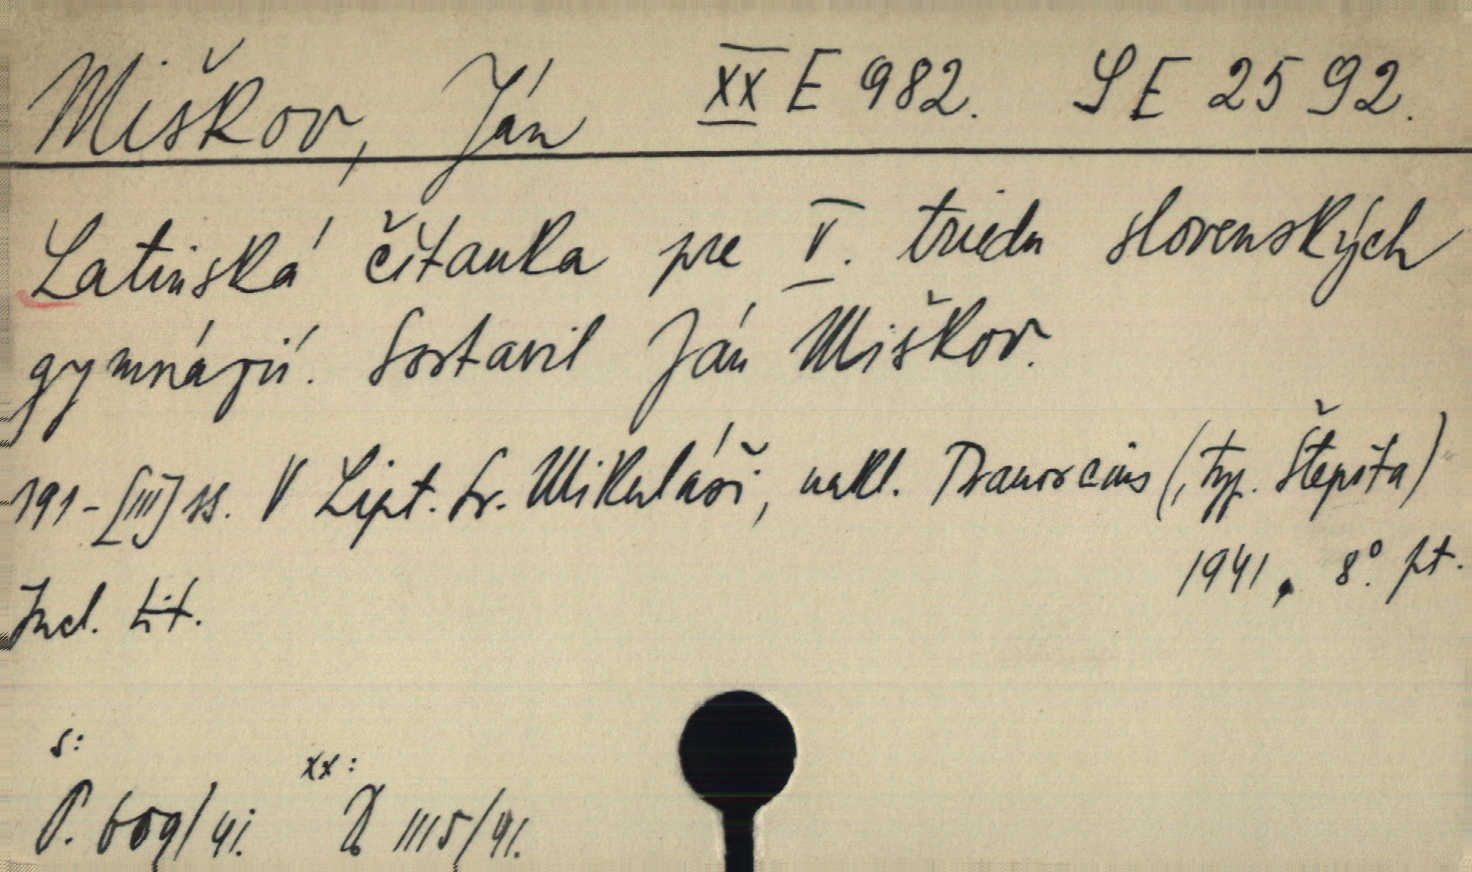 Miškov, Ján XX E 982. S E 2592.
Latinská čítanka pre V. triedu slovenských
gymnázií. Sostavil Ján Miškov.
191-[III] ss. V Lipt. Sv. Mikuláši, nakl. Tranoscius (, typ.
1941, 8°. pt.
Incl. tit.
s: xx:
P. 609/41. 1115/41.